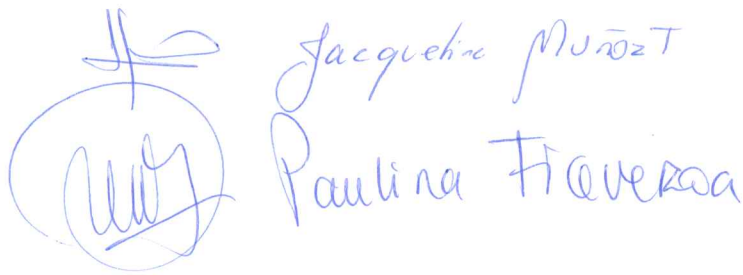 Jacqueline Muñoz T
Paulina Figueroa